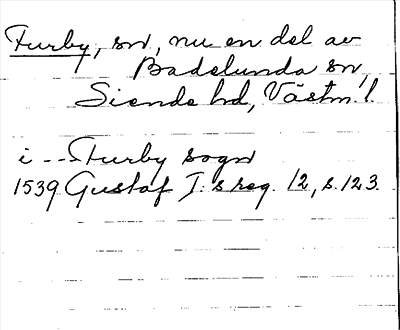 Furby, sn, nu en del av
Badelunda sn,
Siende hd, Västm. l.
i -- Furby sogn
1539 Gustaf I:s reg. 12, s. 123.